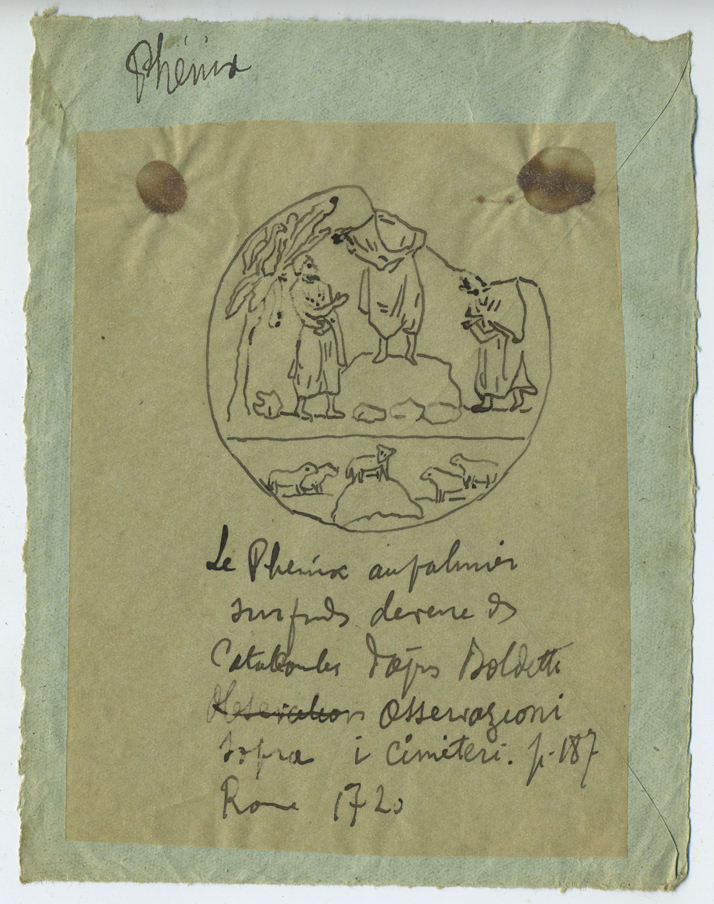 Phénix
Le Phénix au palmier
sur fonds de verre des
Catakombes d'après Boldetti
Observations Osservazioni
sopra i cimiteri. p. 187
Rome 1720